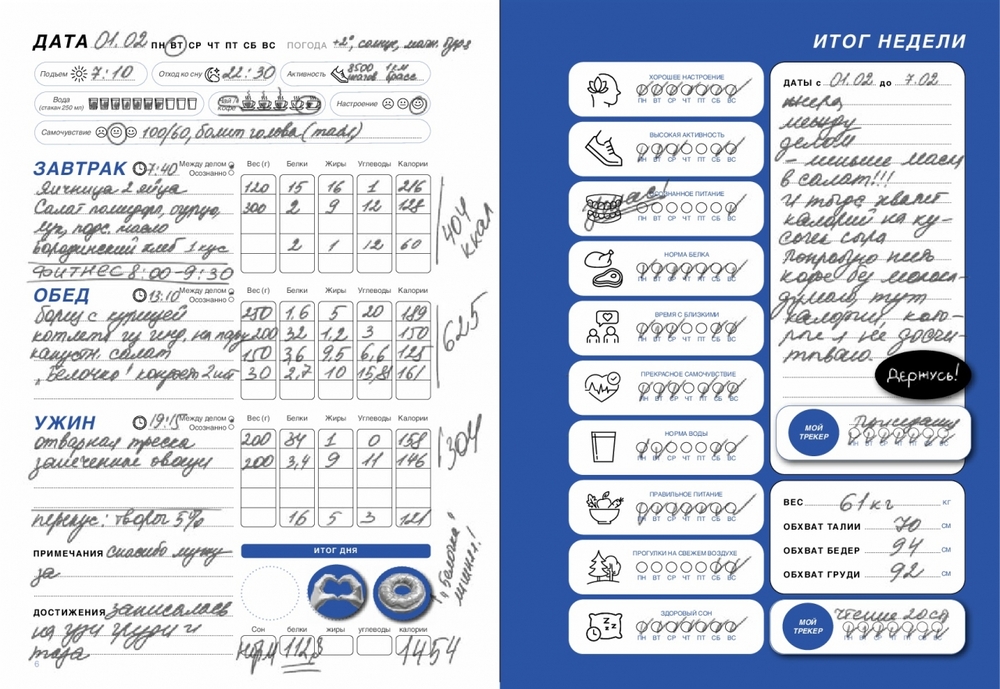 ДАТА 01.02 ПН ВТ СР ЧТ ПТ СБ ВС ПОГОДА +2°, солнце,
Подъем 7:10 Отход ко сну 22:30 Активность 8500 шагов 1км брасс
Вода (стакан 250 мл) Чай / кофе Настроение
Самочувствие 100/60, болит голова
ЗАВТРАК 7:40 Между делом Осознанно Вес (г) Белки Жиры Углеводы Калории
Яичница 2 яйца 120 15 16 1 216
Салат помидоры, огурцы, 300 2 9 12 128
лук, подс. масло
Бородинский хлеб 1 кус 2 1 12 60
404 ккал
ФИТНЕС 8:00-9:30
ОБЕД 13:10 Между делом Осознанно Вес (г) Белки Жиры Углеводы Калории
борщ с курицей 250 1.6 5 20 189
котлета из инд, на пару 200 32 1,2 3 150
капустн. салат 150 3,6 9,5 6,6 125
"Белочка" конфет 2 шт 30 2,7 10 15,8 161
625
УЖИН 19:15 Между делом Осознанно Вес (г) Белки Жиры Углеводы Калории
отварная треска 200 34 1 0 158
запеченные овощи 200 3,4 9 11 146
304
перекус: творог 5% 16 5 3 121
ПРИМЕЧАНИЯ Спасибо мужу
за
ИТОГ ДНЯ
"Белочка"
ДОСТИЖЕНИЯ записалась
на узи груди и
таза
Сон белки жиры углеводы калории
норм 112,3 1454
6
ИТОГ НЕДЕЛИ
ХОРОШЕЕ НАСТРОЕНИЕ
ПН ВТ СР ЧТ ПТ СБ ВС
ВЫСОКАЯ АКТИВНОСТЬ
ПН ВТ СР ЧТ ПТ СБ ВС
ОСОЗНАННОЕ ПИТАНИЕ
ужас!
ПН ВТ СР ЧТ ПТ СБ ВС
НОРМА БЕЛКА
ПН ВТ СР ЧТ ПТ СБ ВС
ВРЕМЯ С БЛИЗКИМИ
ПН ВТ СР ЧТ ПТ СБ ВС
ПРЕКРАСНОЕ САМОЧУВСТВИЕ
ПН ВТ СР ЧТ ПТ СБ ВС
НОРМА ВОДЫ
ПН ВТ СР ЧТ ПТ СБ ВС
ПРАВИЛЬНОЕ ПИТАНИЕ
ПН ВТ СР ЧТ ПТ СБ ВС
ПРОГУЛКИ НА СВЕЖЕМ ВОЗДУХЕ
ПН ВТ СР ЧТ ПТ СБ ВС
ЗДОРОВЫЙ СОН
ПН ВТ СР ЧТ ПТ СБ ВС
ДАТЫ с 01.02 до 7.02
между
делом
- меньше масла
в салат!!!
И тогда хватит
калорий на ку-
сочек сыра
Попробую пить
кофе без молока-
думаю, тут
калории, кото-
рые я не досчи-
тываю.
Держусь!
МОЙ ТРЕКЕР Приседания
ПН ВТ СР ЧТ ПТ СБ ВС
ВЕС 61 кг КГ
ОБХВАТ ТАЛИИ 70 СМ
ОБХВАТ БЕДЕР 94 СМ
ОБХВАТ ГРУДИ 92 СМ
МОЙ ТРЕКЕР Чтение 20 стр
ПН ВТ СР ЧТ ПТ СБ ВС